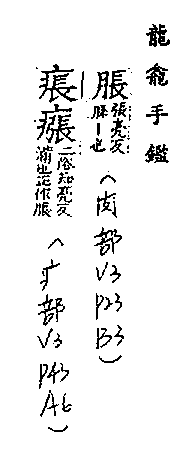 龍龕手鑑
脹 張亮反
丨也
(肉部 V3 P23 B3)
痮瘬 二俗知亮反
滿也正作脹
(疒部 V3 P43 A6)